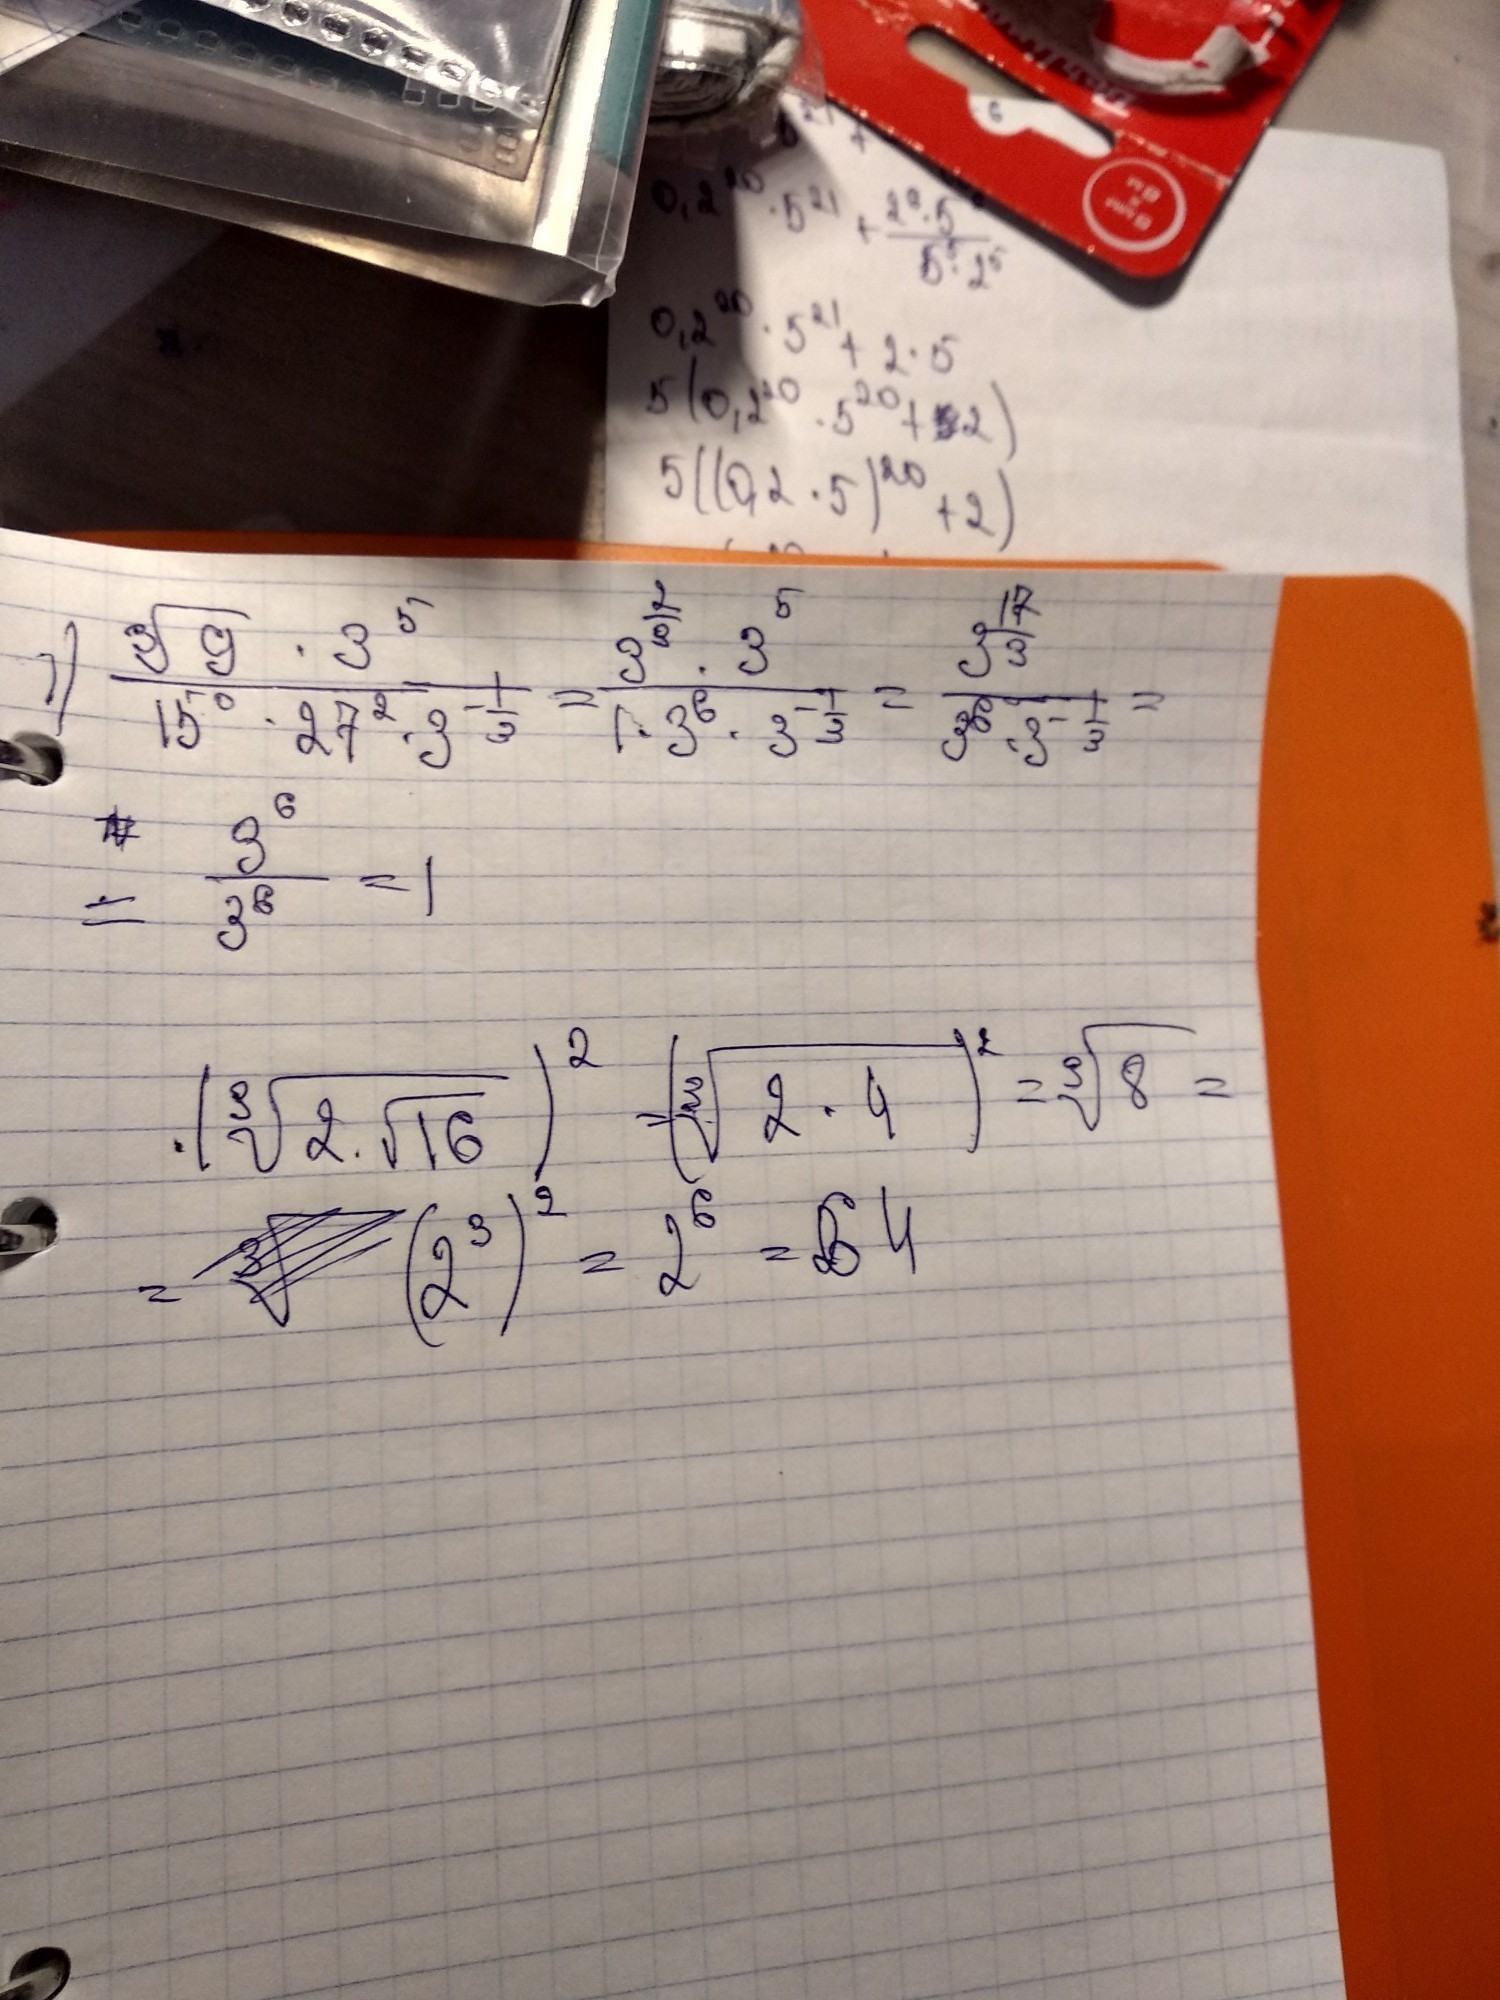 0,2^20 · 5^21 + (2^6 · 5^6)/(5^5 · 2^5)
0,2^20 · 5^21 + 2 · 5
5(0,2^20 · 5^20 + 2)
5((0,2 · 5)^20 + 2)
1) (∛9 · 3^5)/(15^0 · 27^2 · 3^(-1/3)) = (3^(2/3) · 3^5)/(1 · 3^6 · 3^(-1/3)) = 3^(17/3)/(3^6 · 3^(-1/3)) =
= 3^6/3^6 = 1
· (∛(2 · √16))^2 = (∛(2 · 4))^2 = ∛8 =
= (2^3)^2 = 2^6 = 64